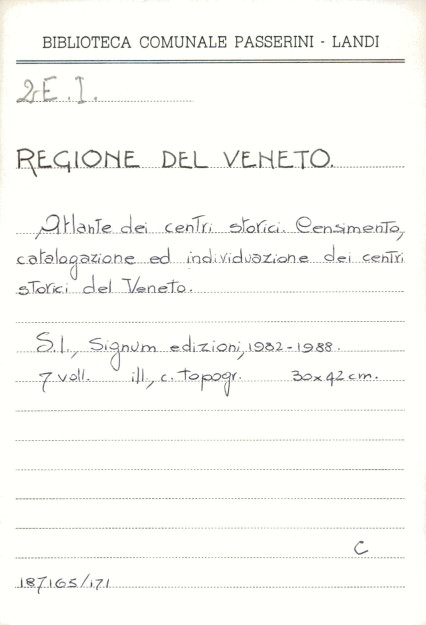 BIBLIOTECA COMUNALE PASSERINI - LANDI
2E.I.
REGIONE DEL VENETO.
Atlante dei centri storici. Censimento,
catalogazione ed individuazione dei centri
storici del Veneto.
S.l., Signum edizioni, 1982-1988.
7 voll. ill., c. topogr. 30x42 cm.
C
187165/171